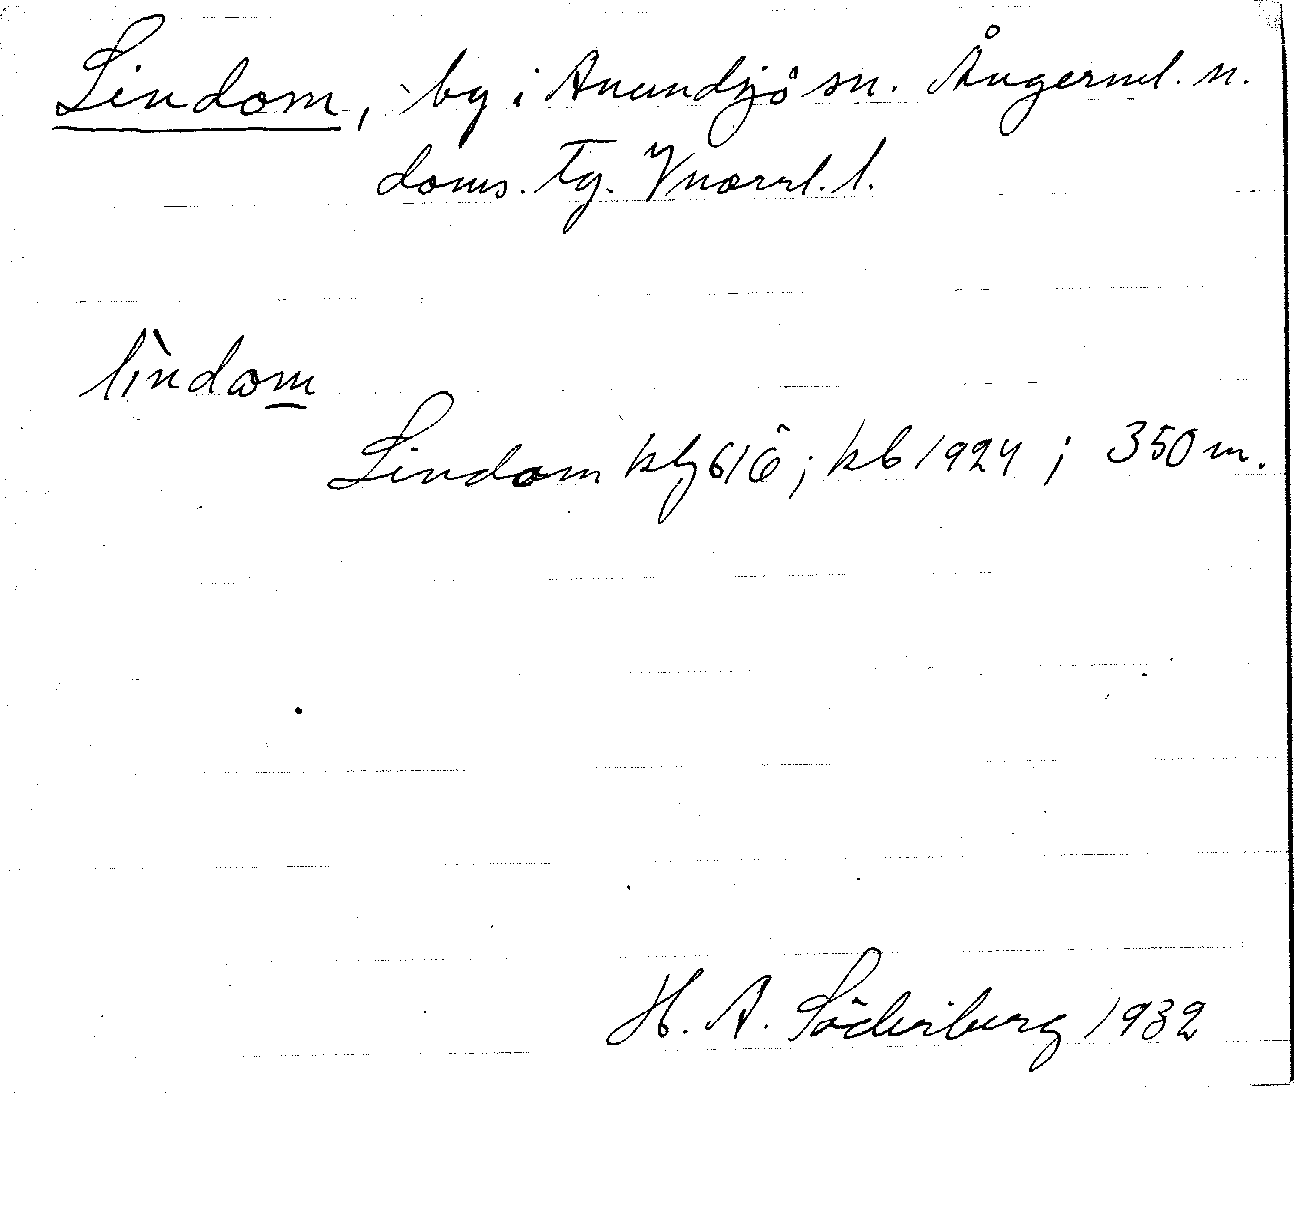 Lindom, by i Anundsjö sn. Ångerml. n.
doms. tg. Vnorrl. l.
lìndom
Lindom kbl 61 Ö; kb 1924; 350 m.
H. A. Söderberg 1932